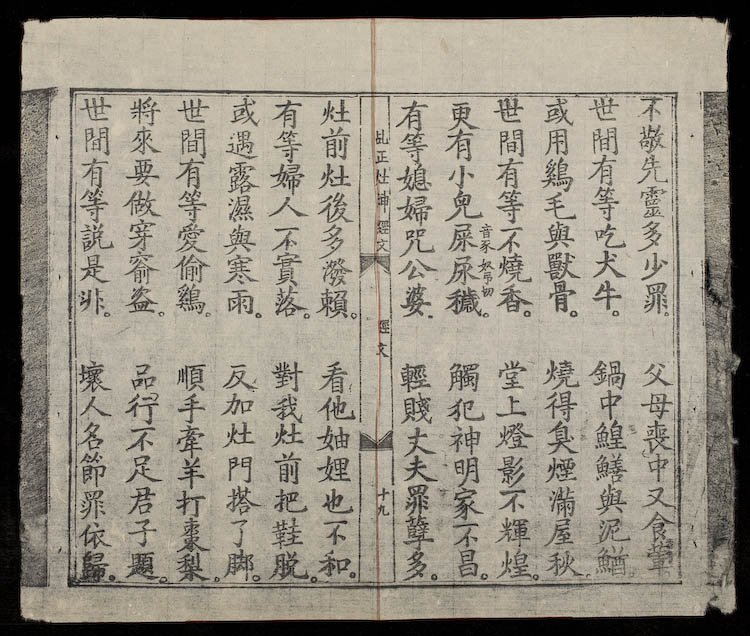 不敬先靈多少罪。 父母喪中又食葷
世間有等吃犬牛。 鍋中鰉鱔與泥鰌。
或用鷄毛與獸骨。 燒得臭煙滿屋秋
世間有等不燒香。 堂上燈影不輝煌。
更有小兒屎尿穢。 觸犯神明家不昌。
音豕 奴弔切
有等媳婦咒公婆。 輕賤丈夫罪孽多。
正灶神經文 經文 十九
灶前灶後多潑賴。 看他妯娌也不和。
有等婦人不實落。 對我灶前把鞋脫。
或遇露濕與寒雨。 反加灶門搭了脚。
世間有等愛偷鷄。 順手牽羊打棗梨。
將來要做穿窬盜。 品行不足君子題。
世間有等説是非。 壞人名節罪依歸。